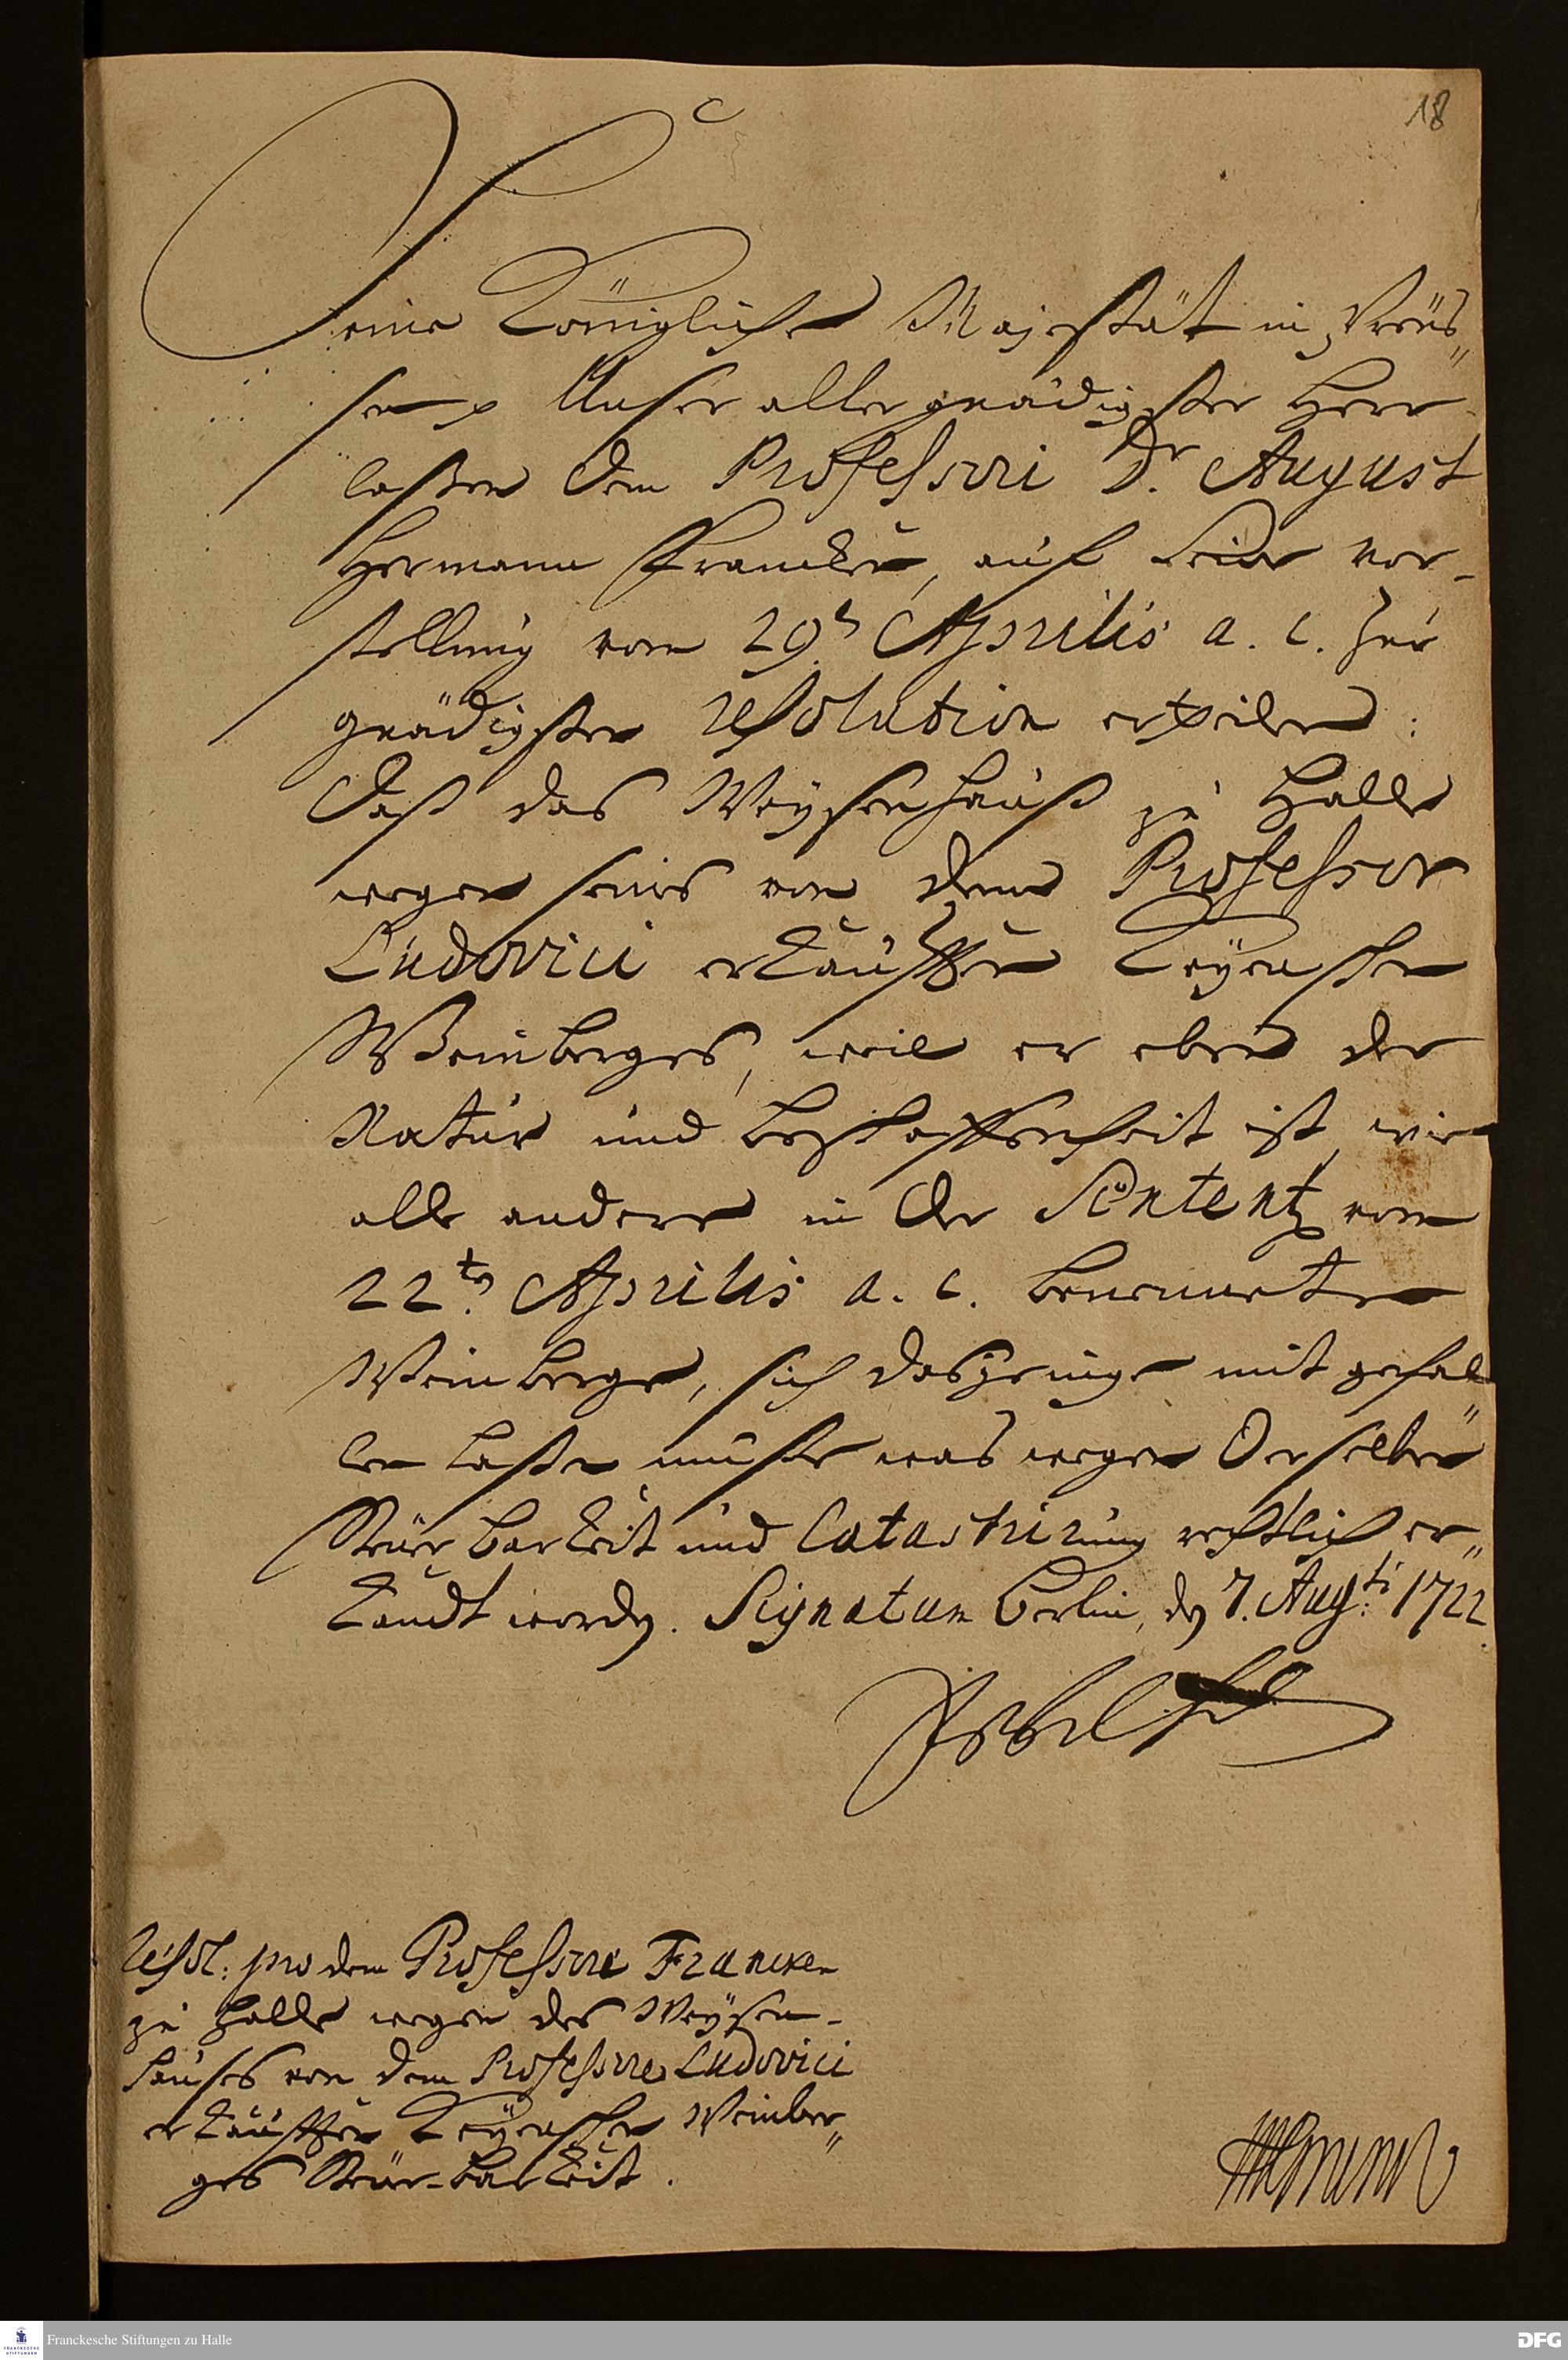 18
Seine Königliche Majestät in Preüs„
sen p Unser allergnädigster Herr
laßen dem Professori Dr. August
Hermann Francken, auf seine vor-
stellung vom 29. Aprilis a. c. zur
gnädigsten resolution ertheilen:
Daß das Weysenhauß zu Halle
wegen seines von dem Professor
Ludovici erkaufften Keÿenschen
Weinberges, weil er eben der
Natur und Beschaffenheit ist, wie
alle andere in der Sententz vom
22ten Aprilis a. c. benennete
Weinberge, sich dasjenige mit gefal„
len laßen müste was wegen derselben
Steuerbarkeit und Catastrirung rechtlich er„
kandt worden. Signatum Berlin, den 7. Augti: 1722.
Resol: pro dem Professore Francken
zu Halle wegen des Weÿsen-
hauses von dem Professore Ludovici
erkaufften Keÿenschen Weinber„
ges Steuer-barkeit.
Franckesche Stiftungen zu Halle
FRANCKESCHE
STIFTUNGEN
DFG